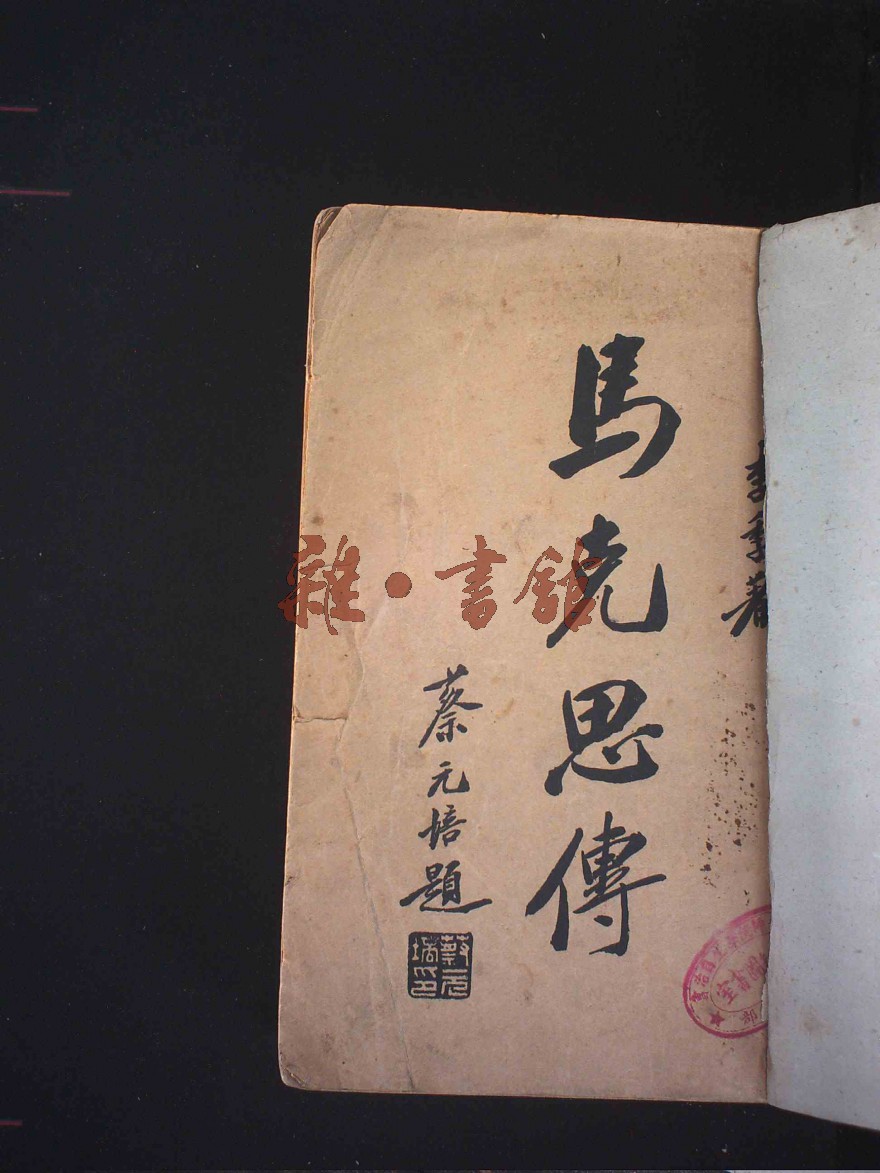 李季著
馬克思傳
蔡元培題
蔡元培印
雜·書館